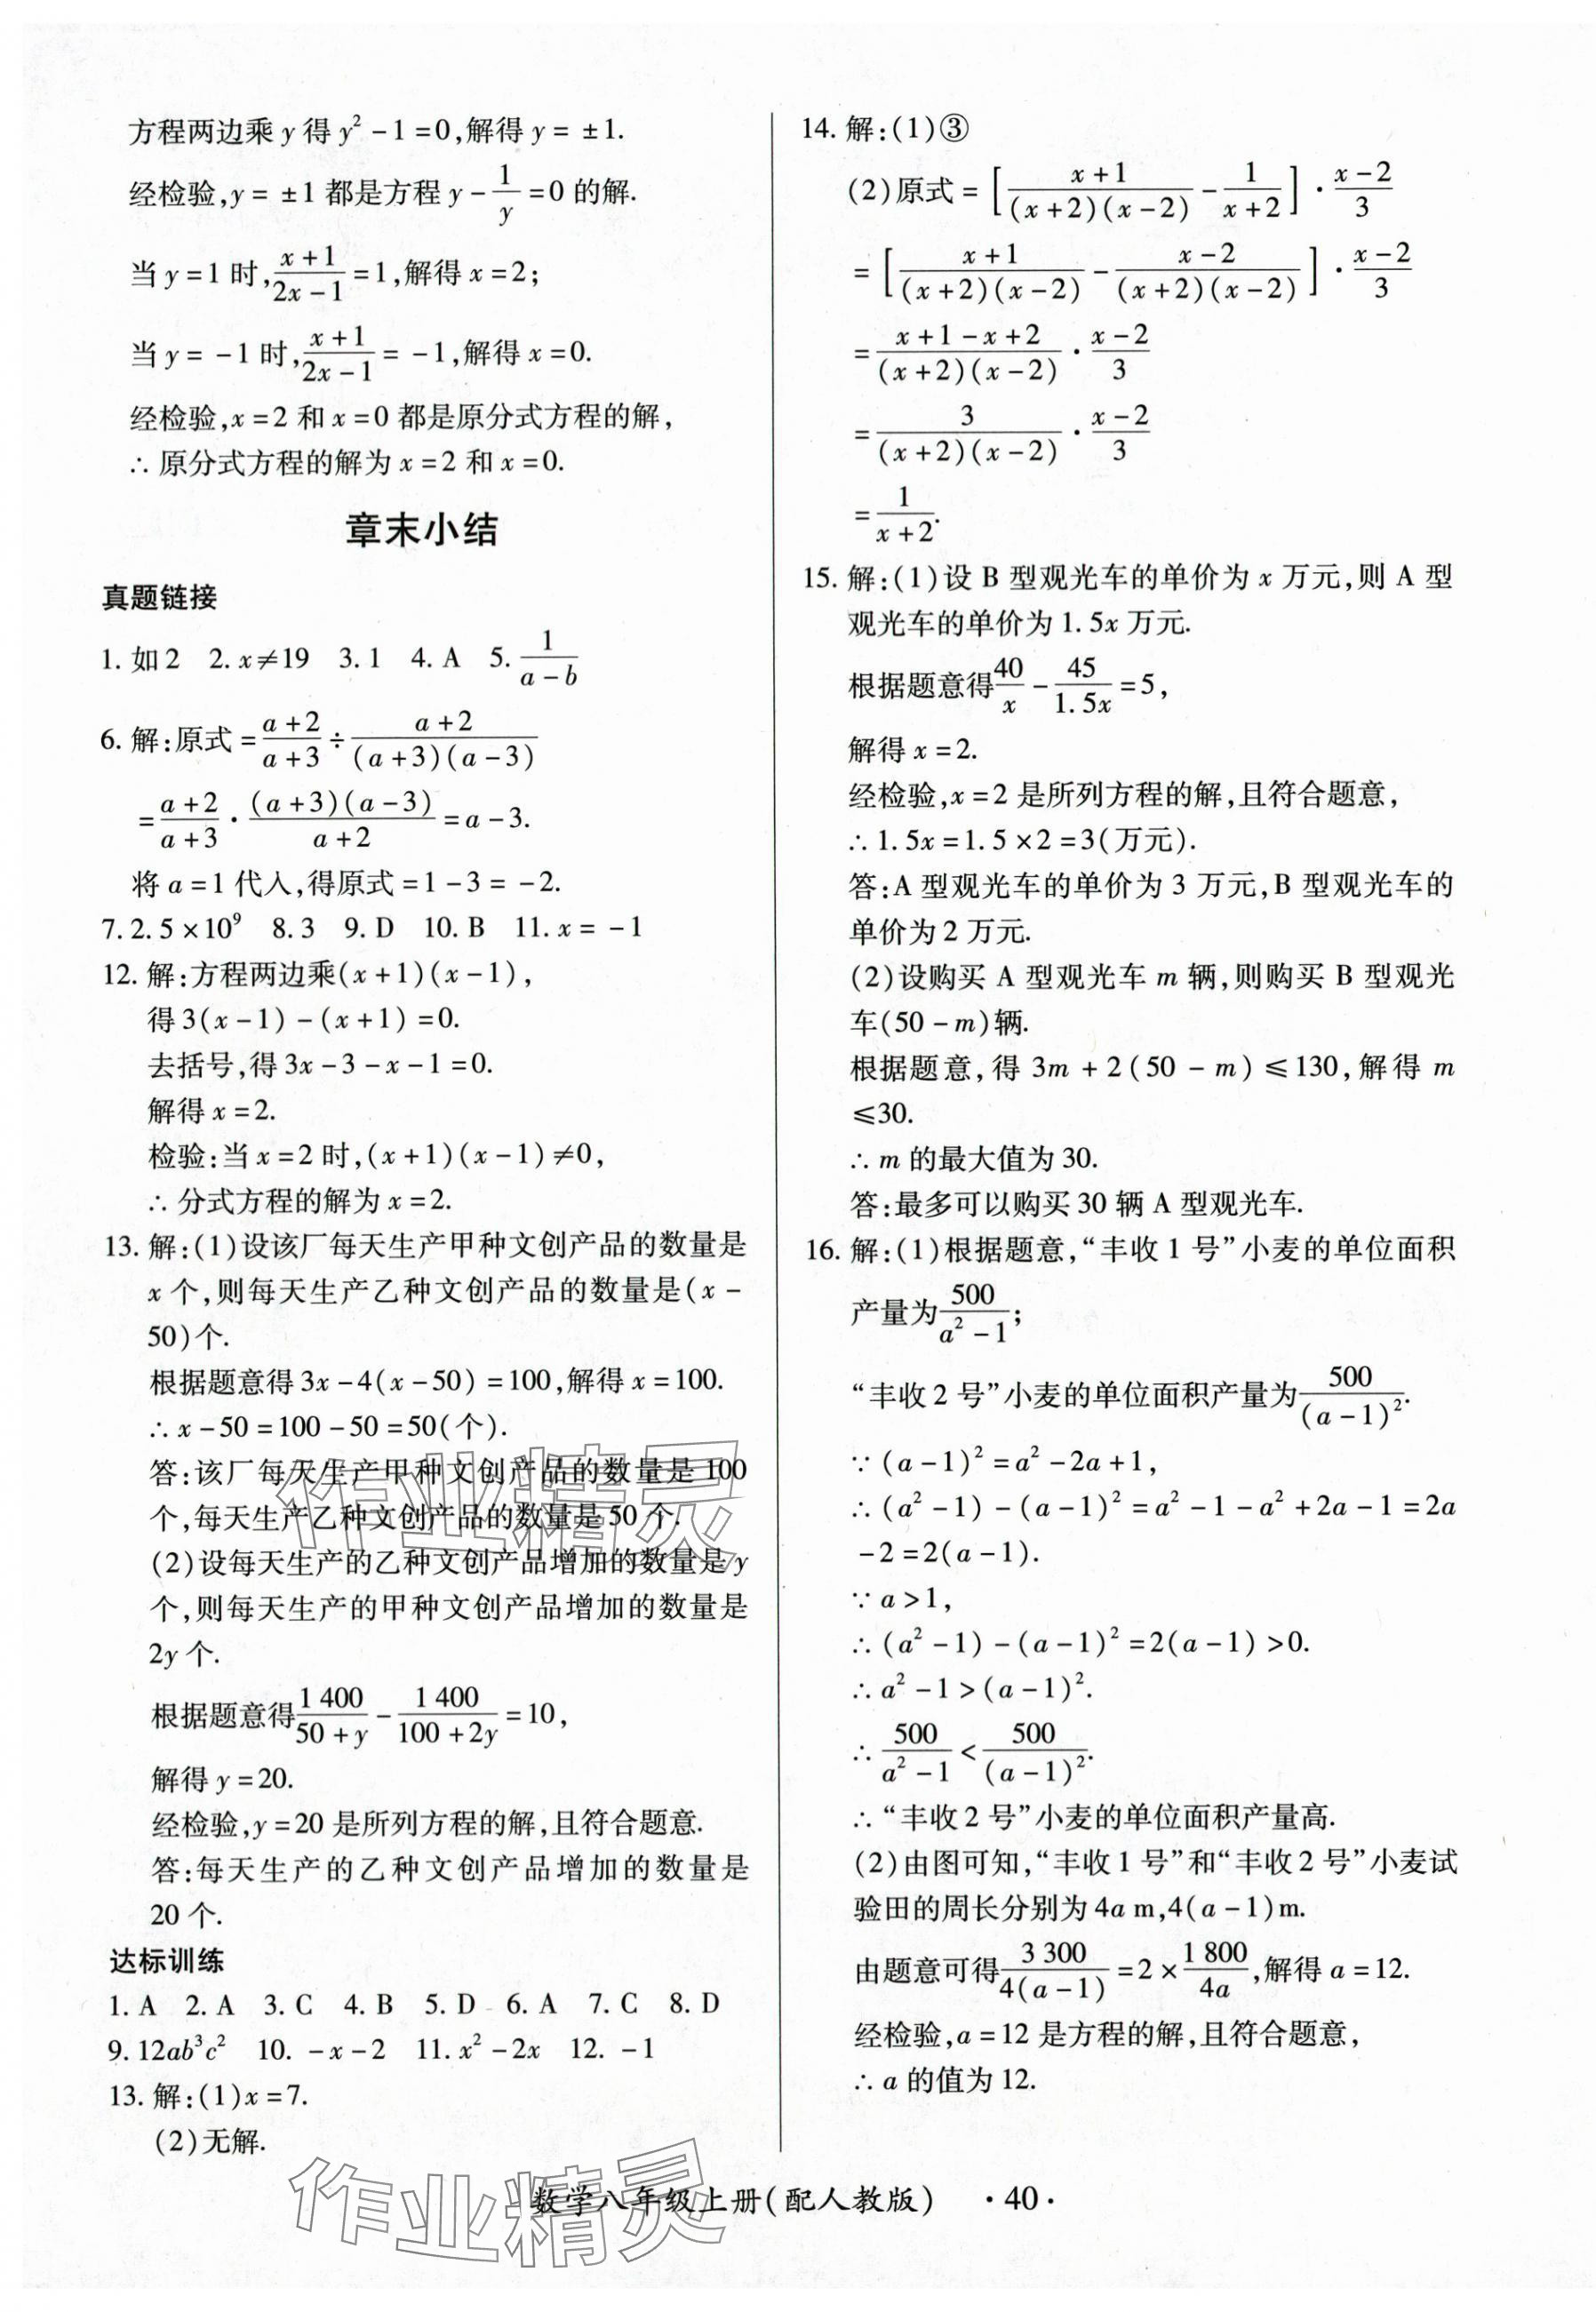 方程两边乘 y 得 y² －1＝0,解得 y＝ ±1.
经检验,y＝ ±1 都是方程 y－1/y＝0 的解.
当 y＝1 时,(x＋1)/(2x－1)＝1,解得 x＝2;
当 y＝－1 时,(x＋1)/(2x－1)＝－1,解得 x＝0.
经检验,x＝2 和 x＝0 都是原分式方程的解,
∴ 原分式方程的解为 x＝2 和 x＝0.
章末小结
真题链接
1. 如 2 2. x≠19 3. 1 4. A 5. 1/(a－b)
6. 解:原式＝(a＋2)/(a＋3)÷(a＋2)/((a＋3)(a－3))
＝(a＋2)/(a＋3)·((a＋3)(a－3))/(a＋2)＝a－3.
将 a＝1 代入,得原式＝1－3＝－2.
7. 2. 5×10⁹ 8. 3 9. D 10. B 11. x＝－1
12. 解:方程两边乘(x＋1)(x－1),
得 3(x－1)－(x＋1)＝0.
去括号,得 3x－3－x－1＝0.
解得 x＝2.
检验:当 x＝2 时,(x＋1)(x－1)≠0,
∴ 分式方程的解为 x＝2.
13. 解:(1)设该厂每天生产甲种文创产品的数量是
x 个,则每天生产乙种文创产品的数量是(x－
50)个.
根据题意得 3x－4(x－50)＝100,解得 x＝100.
∴ x－50＝100－50＝50(个).
答:该厂每天生产甲种文创产品的数量是 100
个,每天生产乙种文创产品的数量是 50 个.
(2)设每天生产的乙种文创产品增加的数量是 y
个,则每天生产的甲种文创产品增加的数量是
2y 个.
根据题意得1 400/(50＋y)－1 400/(100＋2y)＝10,
解得 y＝20.
经检验,y＝20 是所列方程的解,且符合题意.
答:每天生产的乙种文创产品增加的数量是
20 个.
达标训练
1. A 2. A 3. C 4. B 5. D 6. A 7. C 8. D
9. 12ab³c² 10. －x－2 11. x²－2x 12. －1
13. 解:(1)x＝7.
(2)无解.
14. 解:(1)③
(2)原式＝[(x＋1)/((x＋2)(x－2))－1/(x＋2)]·(x－2)/3
＝[(x＋1)/((x＋2)(x－2))－(x－2)/((x＋2)(x－2))]·(x－2)/3
＝(x＋1－x＋2)/((x＋2)(x－2))·(x－2)/3
＝3/((x＋2)(x－2))·(x－2)/3
＝1/(x＋2).
15. 解:(1)设 B 型观光车的单价为 x 万元,则 A 型
观光车的单价为 1. 5x 万元.
根据题意得40/x－45/1. 5x＝5,
解得 x＝2.
经检验,x＝2 是所列方程的解,且符合题意,
∴ 1. 5x＝1. 5×2＝3(万元).
答:A 型观光车的单价为 3 万元,B 型观光车的
单价为 2 万元.
(2)设购买 A 型观光车 m 辆,则购买 B 型观光
车(50－m)辆.
根据题意,得 3m＋2(50－m)≤130,解得 m
≤30.
∴ m 的最大值为 30.
答:最多可以购买 30 辆 A 型观光车.
16. 解:(1)根据题意,“丰收 1 号”小麦的单位面积
产量为500/(a²－1);
“丰收 2 号”小麦的单位面积产量为500/(a－1)².
∵ (a－1)²＝a²－2a＋1,
∴ (a²－1)－(a－1)²＝a²－1－a²＋2a－1＝2a
－2＝2(a－1).
∵ a＞1,
∴ (a²－1)－(a－1)²＝2(a－1)＞0.
∴ a²－1＞(a－1)².
∴ 500/(a²－1)＜500/(a－1)².
∴ “丰收 2 号”小麦的单位面积产量高.
(2)由图可知,“丰收 1 号”和“丰收 2 号”小麦试
验田的周长分别为 4a m,4(a－1)m.
由题意可得3 300/4(a－1)＝2×1 800/4a,解得 a＝12.
经检验,a＝12 是方程的解,且符合题意,
∴ a 的值为 12.
作业精灵
作业精灵
数学八年级上册(配人教版) ·40·